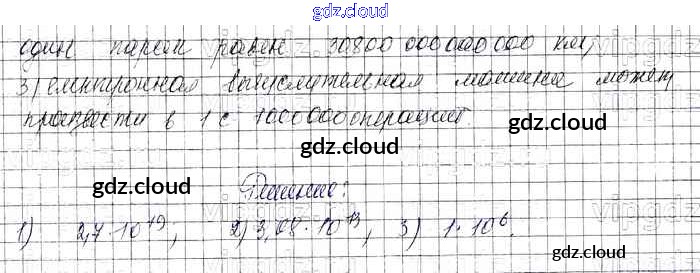 gdz.cloud
один парсек равен 30800 000 000 000 км;
3) електронная вычуслительная машина может
произвести в 1 с 1000 000 операций.
gdz.cloud
gdz.cloud
Решение:
1) 2,7 · 10¹⁹; 2) 3,08 · 10¹³, 3) 1 · 10⁶.
gdz.cloud
gdz.cloud